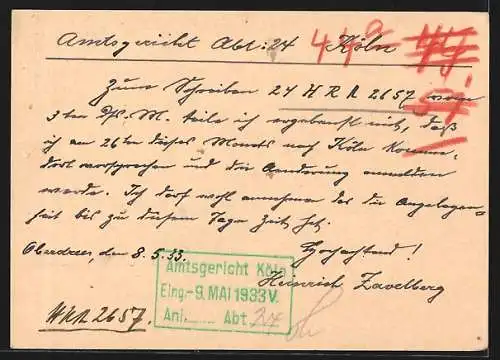 Amtsgericht Abt: 24 Köln 44a
Zum Schreiben 24 H R A 2657 vom
3ten Ds. M. teile ich ergebenst mit, daß
ich am 26ten dieses Monats nach Köln komme,
dort vorsprechen und die Aenderung anmelden
werde. Ich darf wohl annehmen das die Angelegen-
heit bis zu diesem Tage Zeit hat.
Oberdree, den 8.5.33. Hochachtend!
Heinrich Zavelberg
Amtsgericht Köln
Eing. -9. MAI 1933 V.
Anl. ........ Abt. 24
HRA 2657.